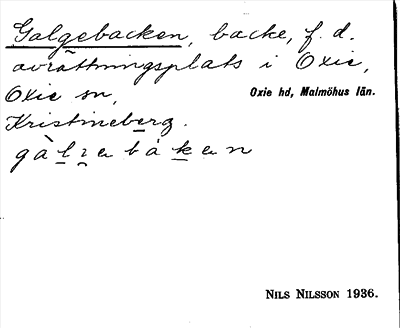 Galgebacken, backe, f. d.
avrättningsplats i Oxie,
Oxie sn,
Oxie hd, Malmöhus län.
Kristineberg.
NILS NILSSON 1936.